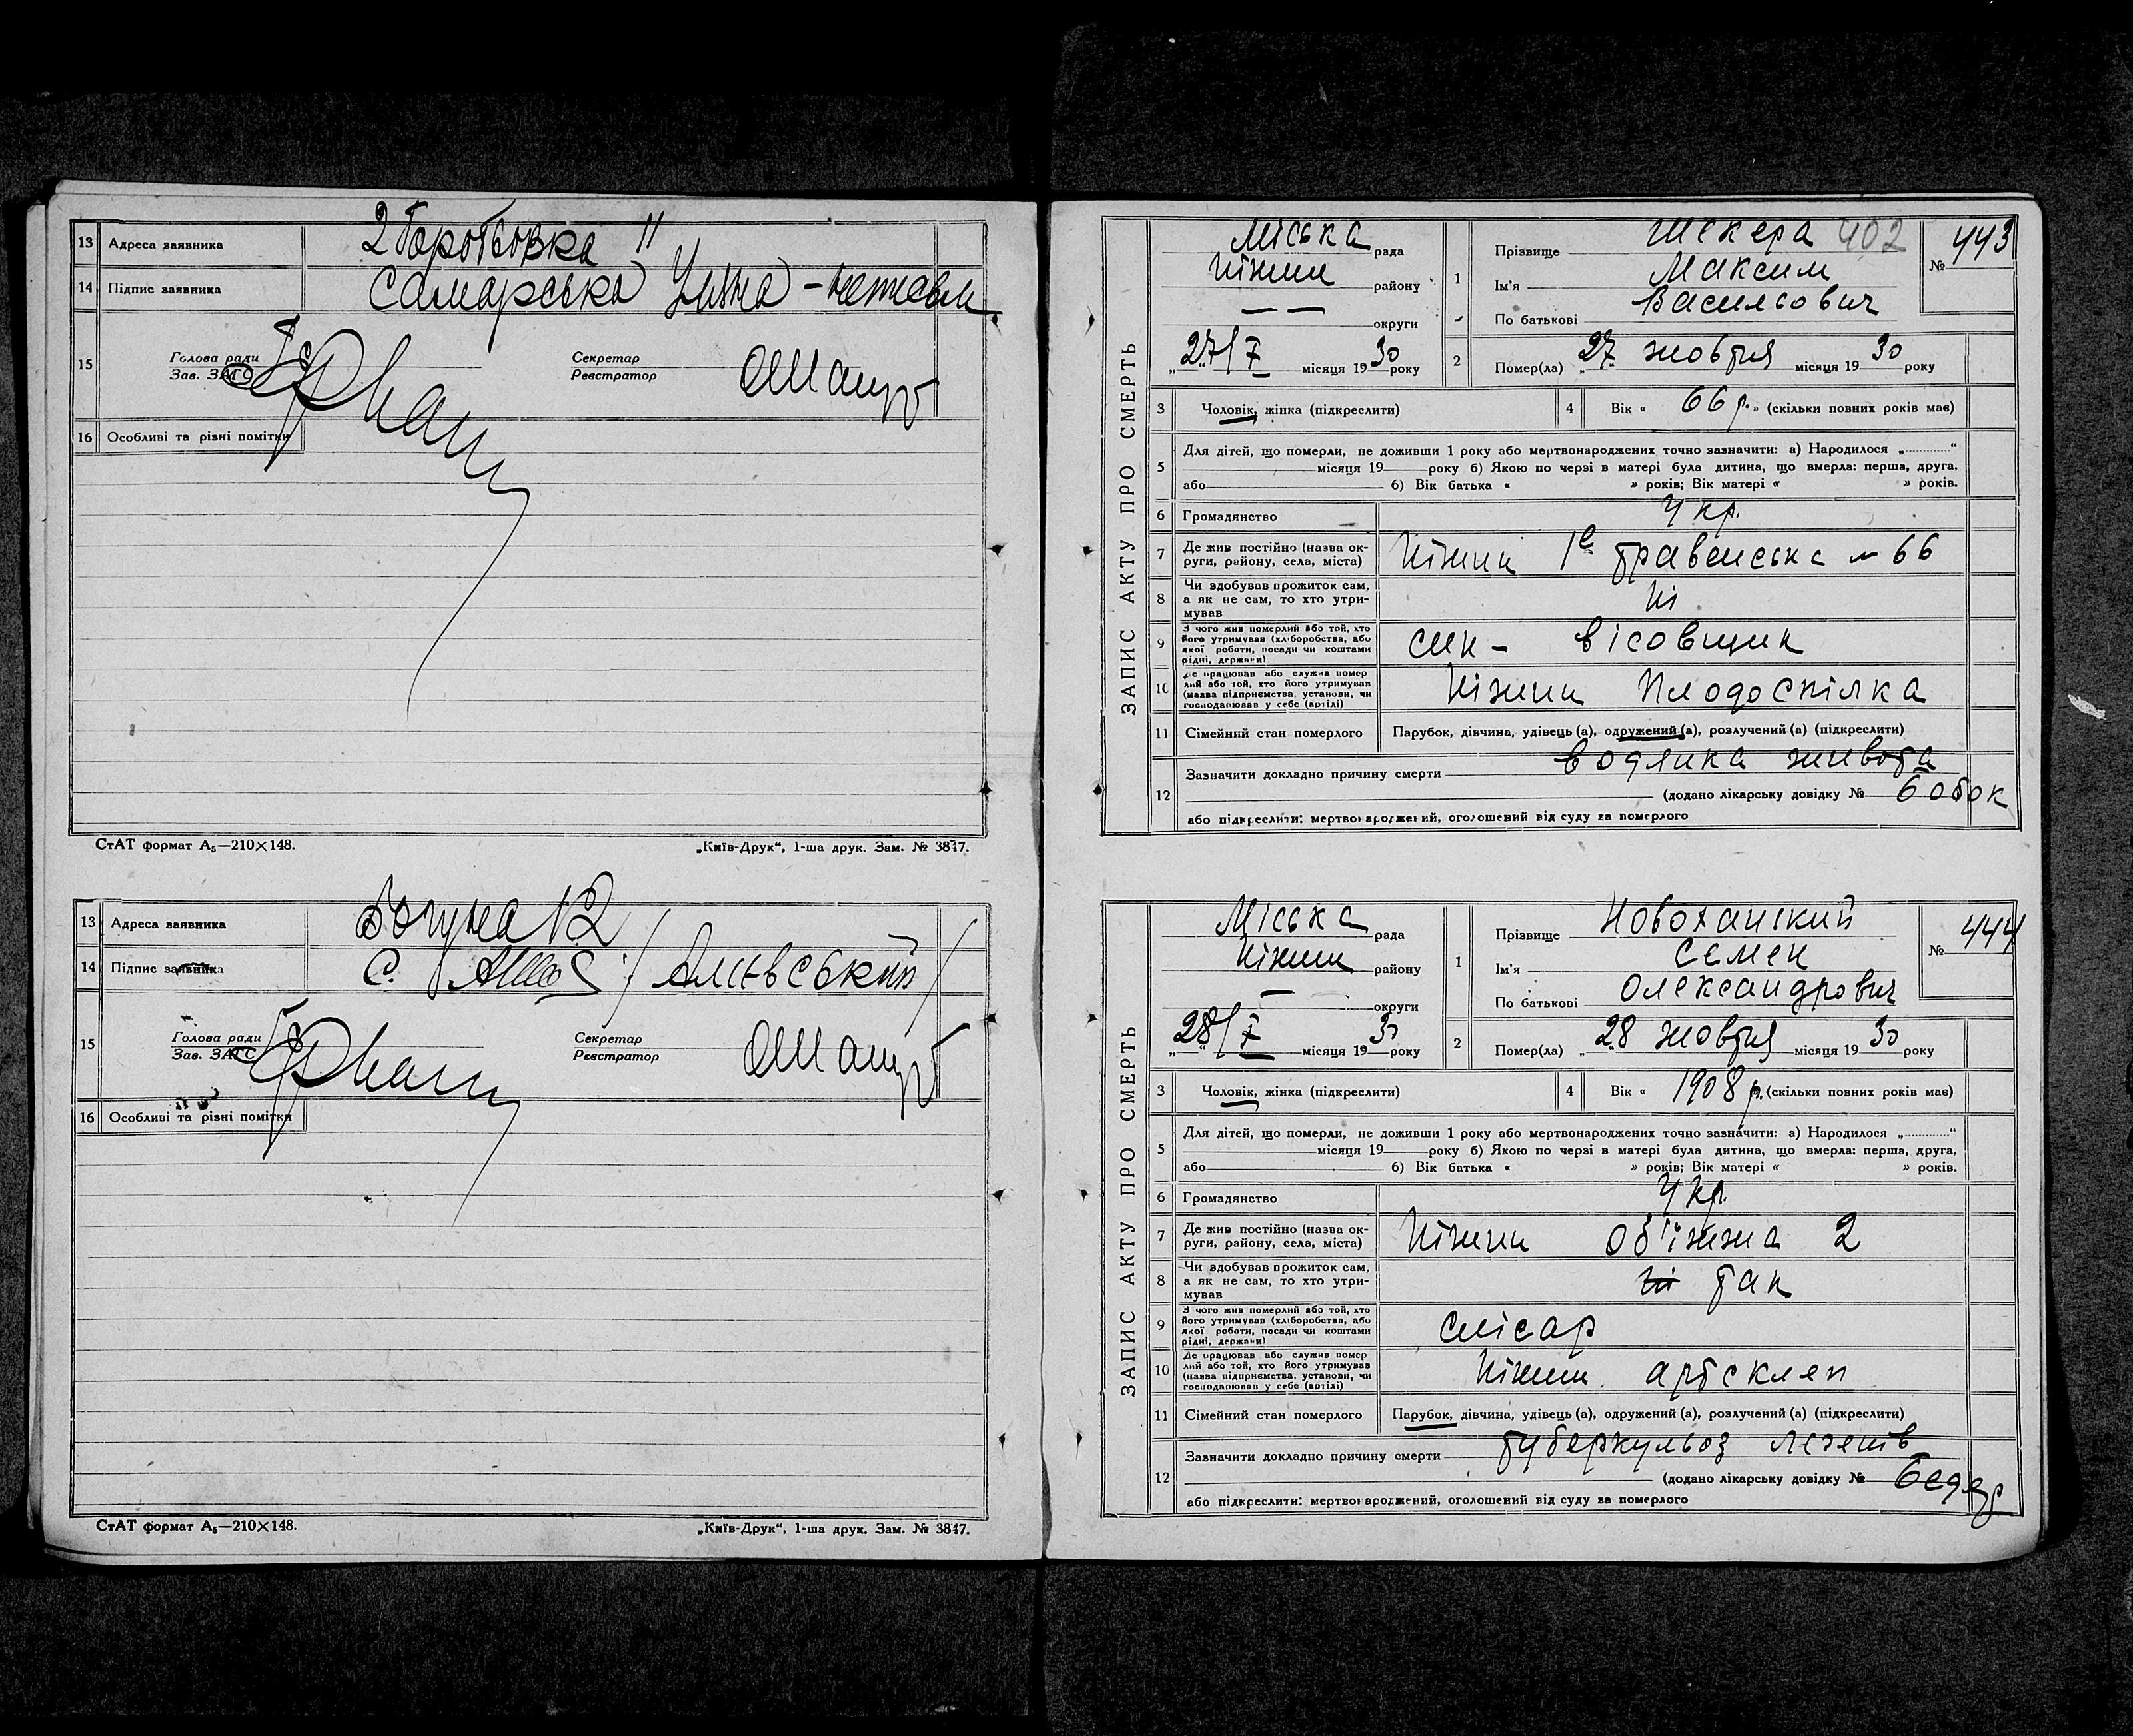 13 Адреса заявника 2 Боротьовка 11
14 Підпис заявника Самарська Уляна - неписьм
15 Голова ради
Зав. ЗАГС
Секретар
Реєстратор
16 Особливі та різні помітки
СтАТ формат А5—210×148.
„Київ-Друк“, 1-ша друк. Зам. № 3847.
13 Адреса заявника Богуна 12
14 Підпис заявника С.
15 Голова ради
Зав. ЗАГС
Секретар
Реєстратор
16 Особливі та різні помітки
СтАТ формат А5—210×148.
„Київ-Друк“, 1-ша друк. Зам. № 3847.
ЗАПИС АКТУ ПРО СМЕРТЬ
Міська рада
Ніжин району
— — округи
„27“/X місяця 1930 року
1 Прізвище Шекера 402
Ім'я Максим
По батькові Васильович
№ 443
2 Помер(ла) „27“ жовтня місяця 1930 року
3 Чоловік, жінка (підкреслити)
4 Вік « 66 р. » (скільки повних років має)
5 Для дітей, що померли, не доживши 1 року або мертвонароджених точно зазначити: а) Народилося „............“
місяця 19 року б) Якою по черзі в матері була дитина, що вмерла: перша, друга,
або б) Вік батька « » років; Вік матері « » років.
6 Громадянство Укр.
7 Де жив постійно (назва округи, району, села, міста) Ніжин 1е травенська № 66
8 Чи здобував прожиток сам, а як не сам, то хто утримував Ні
9 З чого жив померлий або той, хто його утримував (хліборобства, або якої роботи, посади чи коштами рідні, держави) син - вісовщик
10 Де працював або служив померлий або той, хто його утримував (назва підприємства, установи, чи господарював у себе (артілі) Ніжин Плодоспілка
11 Сімейний стан померлого Парубок, дівчина, удівець (а), одружений (а), розлучений (а) (підкреслити)
12 Зазначити докладно причину смерти водянка живота
(додано лікарську довідку № Бобок
або підкреслити: мертвонароджений, оголошений від суду за померлого
ЗАПИС АКТУ ПРО СМЕРТЬ
Міська рада
Ніжин району
— округи
„28“/X місяця 1930 року
1 Прізвище Новоханский
Ім'я Семен
По батькові Олександрович
№ 444
2 Помер(ла) „28“ жовтня місяця 1930 року
3 Чоловік, жінка (підкреслити)
4 Вік « 1908 р. (скільки повних років має)
5 Для дітей, що померли, не доживши 1 року або мертвонароджених точно зазначити: а) Народилося „............“
місяця 19 року б) Якою по черзі в матері була дитина, що вмерла: перша, друга,
або б) Вік батька « » років; Вік матері « » років.
6 Громадянство Укр.
7 Де жив постійно (назва округи, району, села, міста) Ніжин Об'їжжа 2
8 Чи здобував прожиток сам, а як не сам, то хто утримував ні так
9 З чого жив померлий або той, хто його утримував (хліборобства, або якої роботи, посади чи коштами рідні, держави) Слісар
10 Де працював або служив померлий або той, хто його утримував (назва підприємства, установи, чи господарював у себе (артілі) Ніжин артсклеп
11 Сімейний стан померлого Парубок, дівчина, удівець (а), одружений (а), розлучений (а) (підкреслити)
12 Зазначити докладно причину смерти туберкульоз легенів
(додано лікарську довідку №
або підкреслити: мертвонароджений, оголошений від суду за померлого